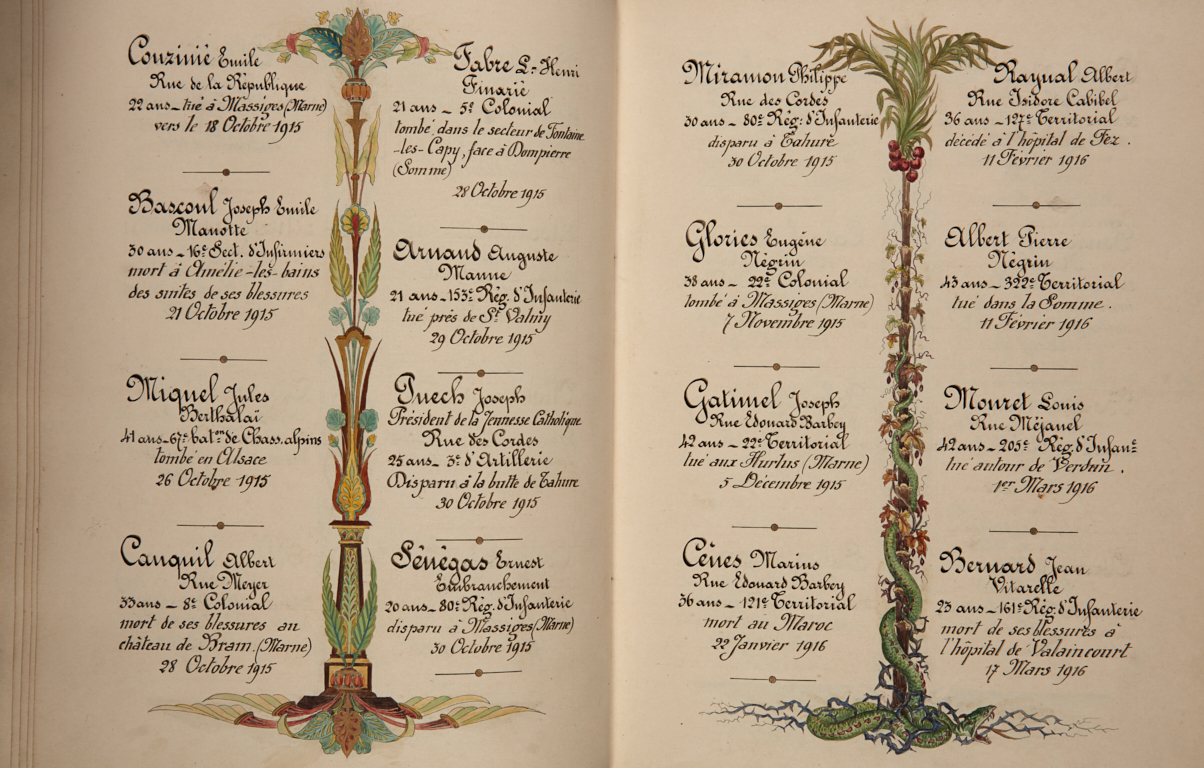 Couzinié Emile
Rue de la République
22 ans _ tué à Massiges (Marne)
vers le 18 Octobre 1915
Bascoul Joseph Emile
Manotte
30 ans _ 16e Sect. d'Infirmiers
mort à Amélie-les-bains
des suites de ses blessures
21 Octobre 1915
Miquel Jules
Berthalaï
41 ans _ 67e bat.on de Chass. alpins
tombé en Alsace
26 Octobre 1915
Cauquil Albert
Rue Meyer
33 ans _ 8e Colonial
mort de ses blessures au
château de Bram (Marne)
28 Octobre 1915
Fabre L.s Henri
Finarié
21 ans _ 5e Colonial
tombé, dans le secteur de Fontaine
-les-Capy, face à Dompierre
(Somme)
28 Octobre 1915
Arnaud Auguste
Manne
21 ans _ 153e Rég. d'Infanterie
tué près de St Valmy
29 Octobre 1915
Puech Joseph
Président de la Jeunesse Catholique
Rue des Cordes
25 ans _ 3e d'Artillerie
Disparu à la butte de Tahure
30 Octobre 1915
Sénégas Ernest
Embranchement
20 ans _ 80e Rég. d'Infanterie
disparu à Massiges (Marne)
30 Octobre 1915
Miramon Philippe
Rue des Cordes
30 ans _ 80e Rég: d'Infanterie
disparu à Tahure
30 Octobre 1915
Glories Eugène
Négrin
38 ans _ 22e Colonial
tombé à Massiges (Marne)
7 Novembre 1915
Gatimel Joseph
Rue Edouard Barbey
42 ans _ 22e Territorial
tué aux Hurlus (Marne)
5 Décembre 1915
Cénes Marius
Rue Edouard Barbey
36 ans _ 121e Territorial
mort au Maroc
22 Janvier 1916
Raynal Albert
Rue Isidore Cabibel
36 ans _ 127e Territorial
décédé à l'hôpital de Fez.
11 Février 1916
Albert Pierre
Négrin
43 ans _ 322e Territorial
tué dans la Somme.
11 Février 1916
Mouret Louis
Rue Méjanel
42 ans _ 205e Rég. d'Infan.e
tué autour de Verdun.
1er Mars 1916
Bernard Jean
Vitarelle
23 ans _ 161e Rég. d'Infanterie
mort de ses blessures à
l'hôpital de Valaincourt
17 Mars 1916